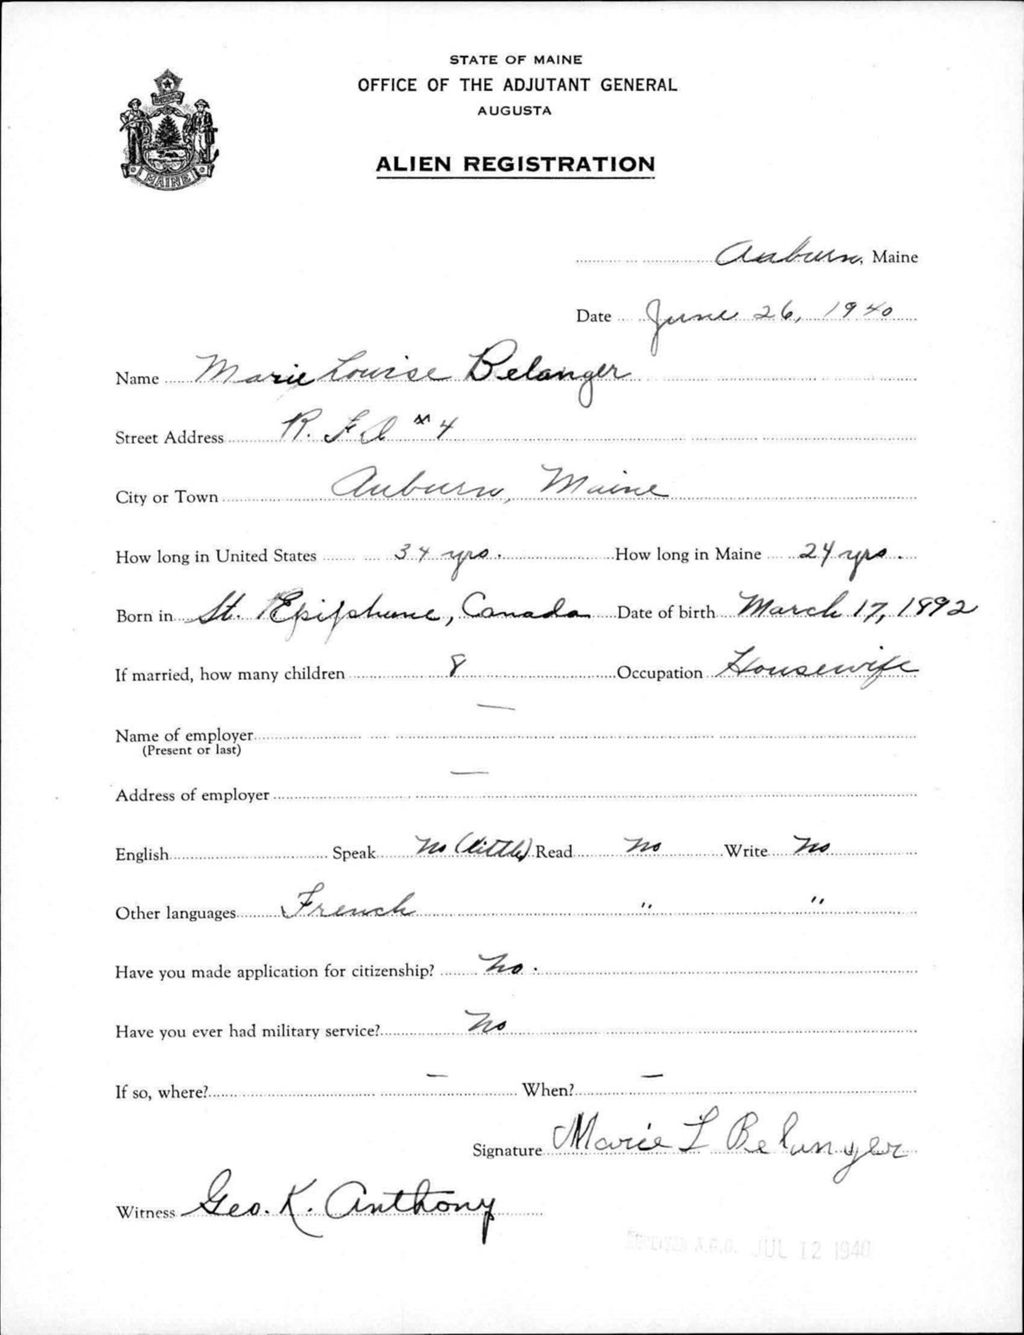 STATE OF MAINE
OFFICE OF THE ADJUTANT GENERAL
AUGUSTA
ALIEN REGISTRATION
MAINE
Auburn, Maine
Date June 26, 1940
Name Marie Louise Belanger
Street Address R. F. D. #4
City or Town Auburn, Maine
How long in United States 34 yrs. How long in Maine 24 yrs.
Born in St. Epiphane, Canada Date of birth March 17, 1892
If married, how many children 8 Occupation Housewife
Name of employer —
(Present or last)
Address of employer —
English Speak No (little) Read No Write No
Other languages French " "
Have you made application for citizenship? No.
Have you ever had military service? No
If so, where? — When? —
Signature Marie L Belanger
Witness Geo. K. Anthony
RECEIVED A.G.O. JUL 12 1940